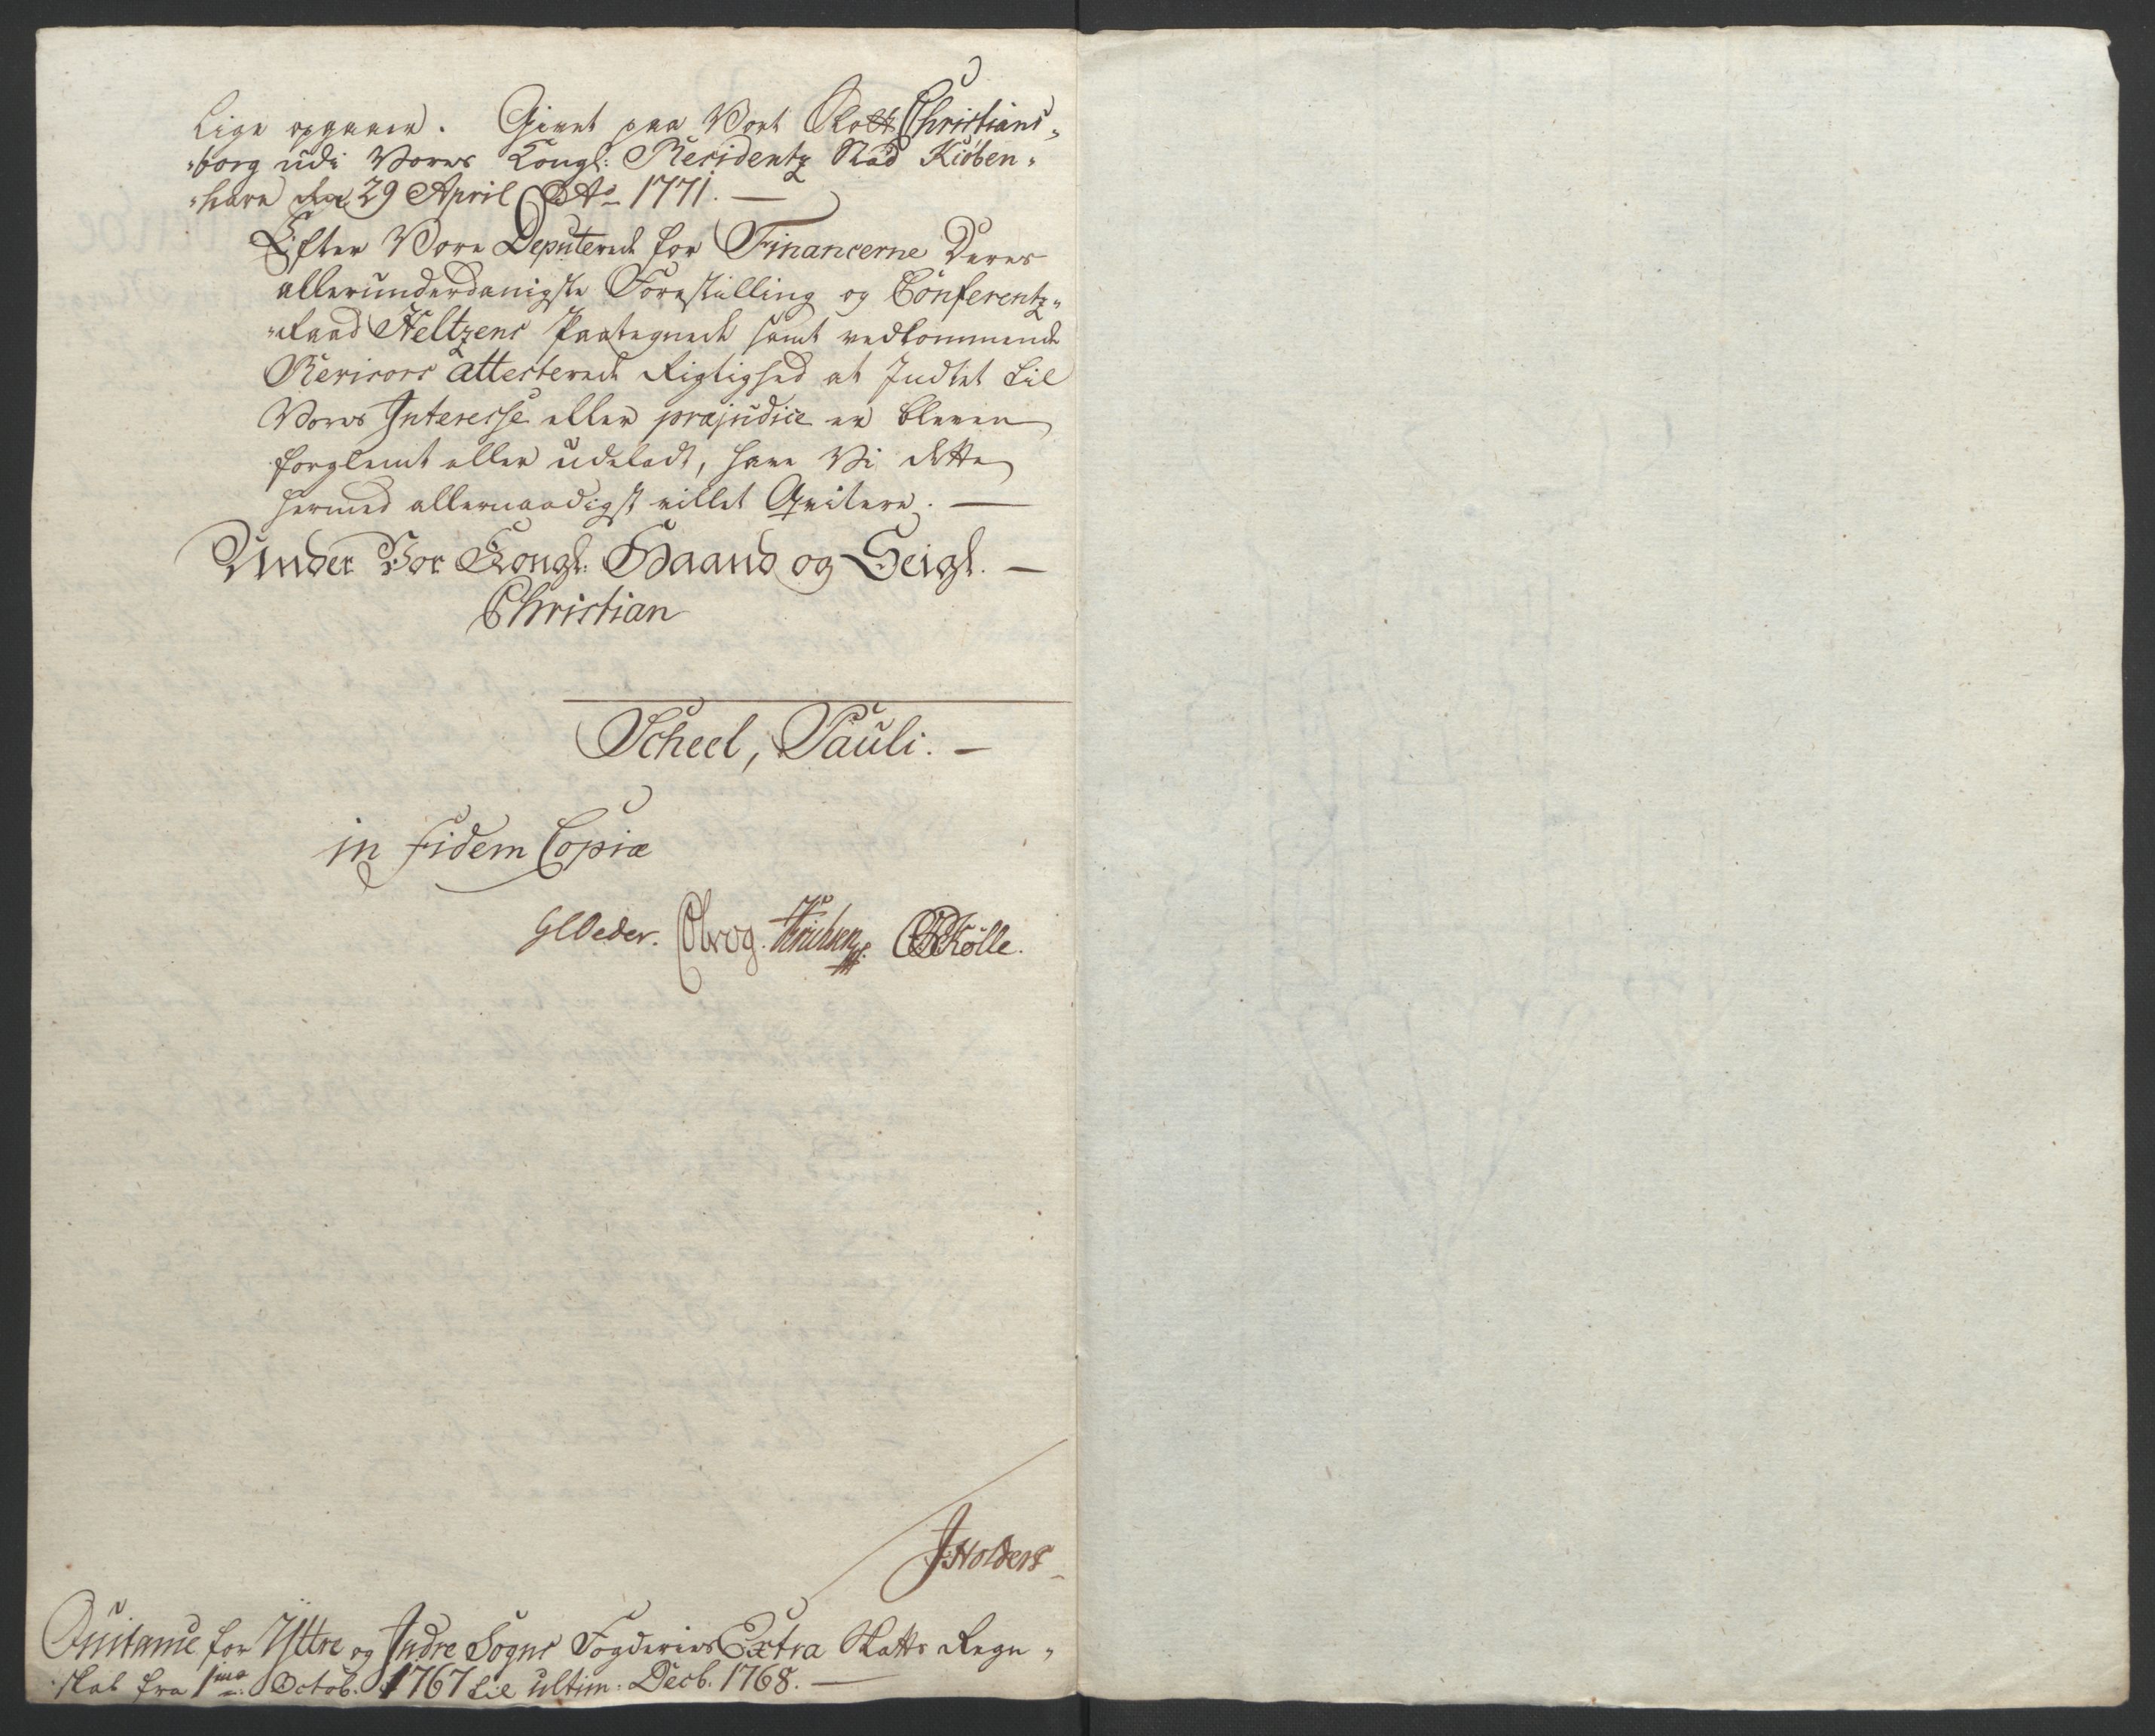 lige opgaaer. Givet paa Vort Slott Christians„
„borg udi Vores Kongl: Residentz Stad Kiöben„
„havn den 29 April Ao 1771. —
Efter Vore Deputerede for Financerne Deres
allerunderdanigste Forestilling og Conferentz„
„Raad Heltzens Paategnede samt vedkommende
Revisors attesterede Rigtighed at Indtet til
Vores Interesse eller præjudice er bleven
forglemt eller udeladt, have Vi dette
hermed allernaadigst villet Qvitere. —
Under Vor Kongl: Haand og Seigl. —
Christian
Scheel, Pauli. —
in fidem Copiæ
GCOeder. Kølle.
J Holders
Quitance for Yttre og Indre Sogns Fogderies Extra Skatts Regn„
„skab fra 1ma Octob. 1767 til ultim: Decb. 1768. —